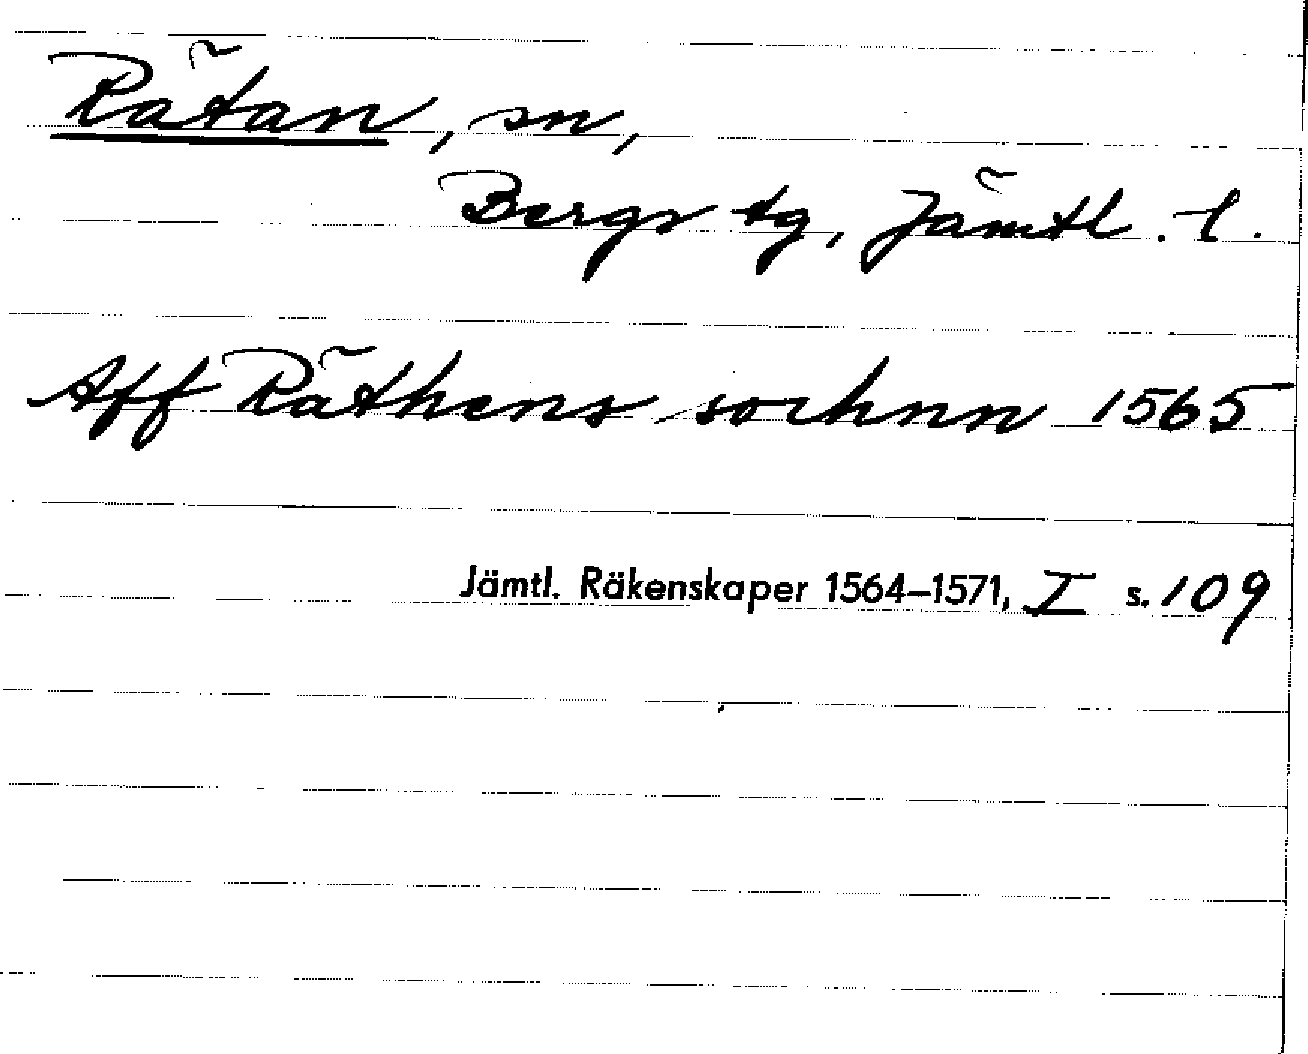 Rätan, sn,
Bergs tg, Jämtl. l.
Aff Räthens sochnn 1565
Jämtl. Räkenskaper 1564–1571, I s. 109